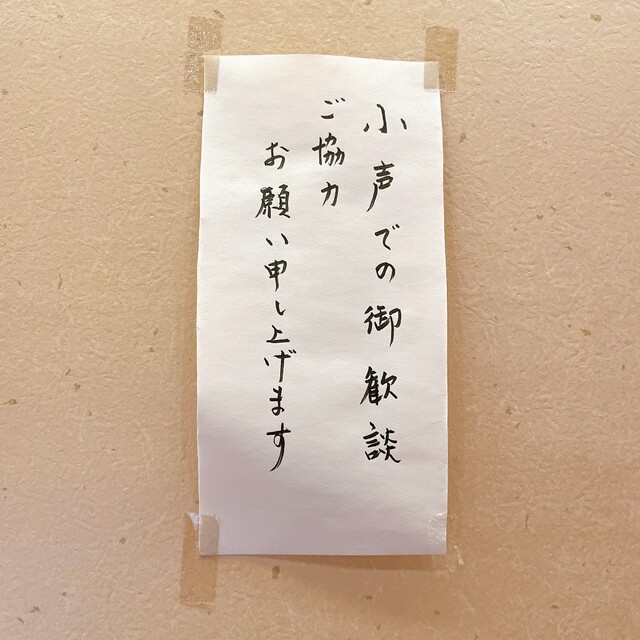 小声での御歓談
ご協力
お願い申し上げます